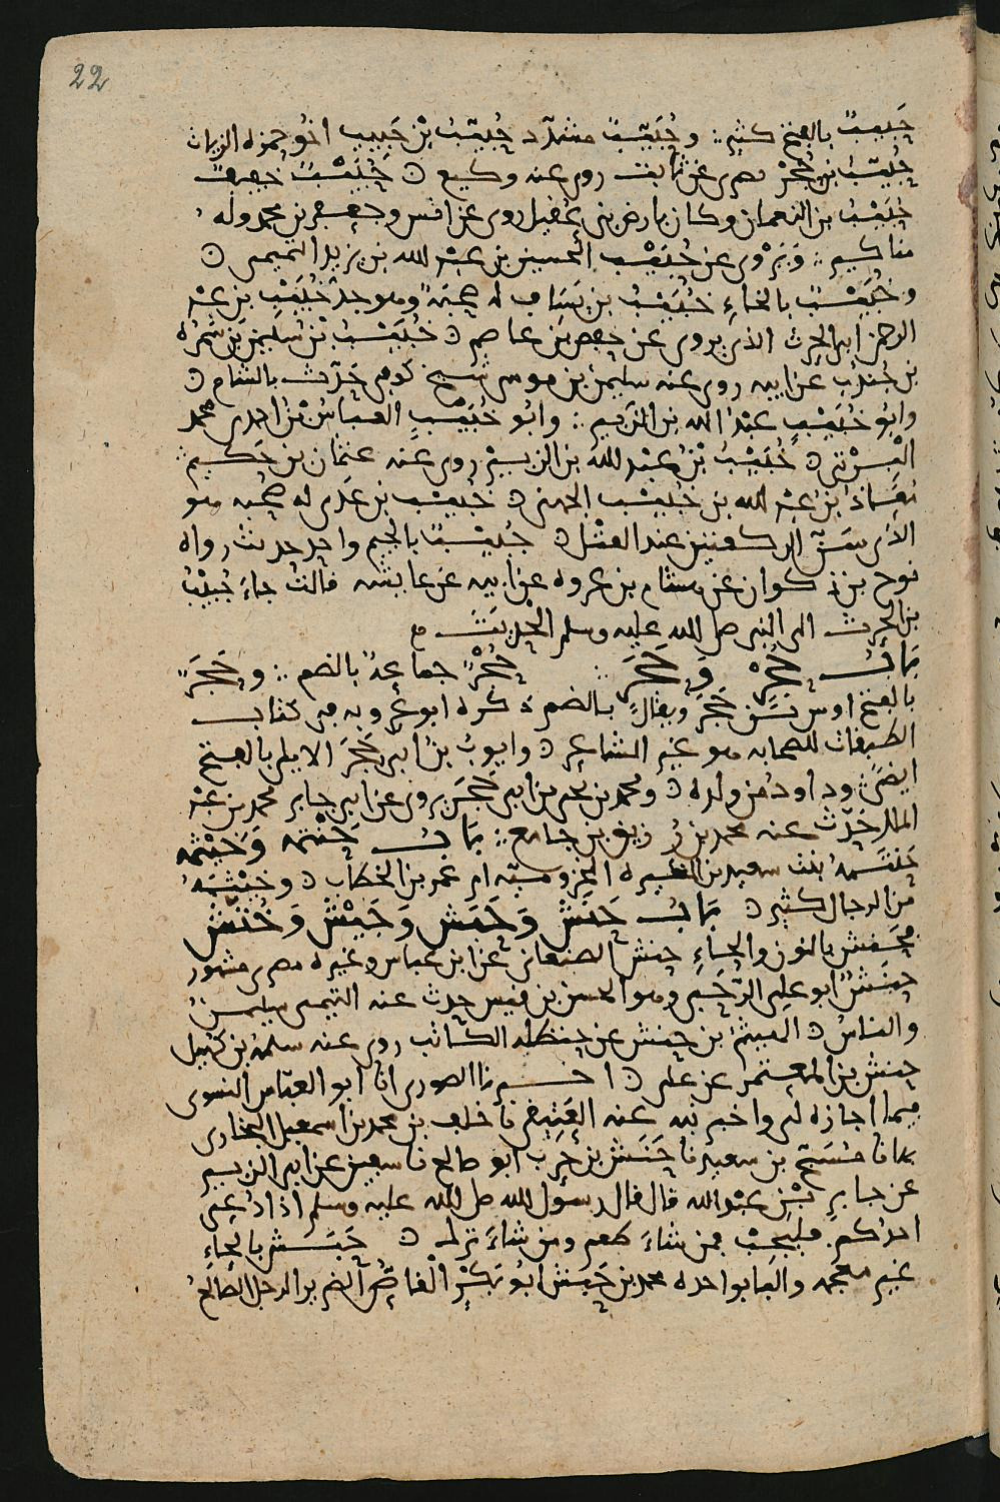 22
حَبيبٌ بالفتح كثير ∴ وحُبَيّبٌ مشدّد حُبيّبُ بْن حَبيب اخو حمزه الزيات
حُبيّبُ بن حُجْر بصرى عن ثابت روى عنه وكيع ൦ حُبَيْبٌ خفيف
حُبَيْبُ بن النعمان وكان بارض بنى عُقيل روى عن انس وجعفر بن محمد وله
مناكير ∴ وَيَرْوى عن حُبَيْب الحسين بن عبْد الله بن يزيد التميمى ൦
وخُبَيْبٌ بالخاءِ خُبَيْبُ بن يَسَاف له صُحْبَةٌ وهو جدّ خُبَيْب بن عبْد
الرحمن ابى الحرث الذى يروى عن حفص بن عاصم ൦ خُبَيْبُ بْن سُليمن بن سَمُرَه
بن جُندُب عن ابيه روى عنه سليمن بن موسى شيخ كوفى حَدّث بالشام ൦
وابو خُبَيْبٍ عبْدُ الله بن الزبير ∴ وابُو خُبَيْبٍ العباسُ بْن احمد بن محمد
البِرْتى ൦ خُبَيْبُ بْن عبْد الله بن الزبيْر روى عنه عثمان بن حَكيم ∴
مُعَاذ ابن عبْد الله بن خُبيْب الجهنى ൦ خُبيْب بن عَدى له صُحْبَه هو
الذى سَنّ الركعتين عند القتْل ൦ جُبيْبٌ بالجيم واحد حديث رواه
نوح بن ذكوان عن هشام بن عروه عن ابيه عن عايشه قالتْ جاءَ جُبيْبُ
بن الحرث الى النبى صلى الله عليه وسلم الحْديثَ
بَابُ حُجْرٍ وَحَجَرٍ ∴ حُجْرٌ جماعةٌ بالضم ∴ وحَجَرٌ
بالفتح اوس بْن حَجَر ويقال بالضم ذكره ابو عَرُوبه فى كتاب
الطبقات للصحابه هو غير الشاعر ൦ وايوبُ بْن ابى حَجَرَ الايلى بالفتح
ايضًا وداود من ولده ൦ ومحمد بن يحيى بن ابى حَجَر يروى عن ابى جابر محمد بن عبْد
الملك حَدّث عنه محمد بن زريق بن جامع ∴ بَابُ حَنْتَمه وَخَيْثَمه
حَنْتَمَة بنت سعيد بن المغيره المخزوميّه ام عمر بن الخطاب ൦ وخَيْثَمَةُ
من الرجال كثير ൦ بَابُ حَنَشٍ وَحَبَشٍ وَجَيْشٍ وَخُنَيْس
فحَنَش بالنون والحاءِ حنش الصنعانى عن ابن عباس وغيره مصرى مشهور
حنَشٌ ابو على الرّحَبى وهو الحسين بن قيس حدث عنه التيمى سليمنُ
والناسُ ൦ الهيثمُ بن حنش عن حنظله الكاتب روى عنه سلمة بن كهيل
حنش بن المعتمر عن على ൦ اخبرنا الصورى انا ابو العباس النسوى
فيما اجازه لى واخبرنيه عنه العَتِيقى نا خلف بن محمد بن اسمعيل البخارى
نا مُسَبّح بن سعيد نا حَنَش بن حَرْب ابو صالح نا سفين عن ابى الزبير
عن جابرِ بْن عبْد الله قال قال رسول الله صلى الله عليه وسلم اذا دُعِىَ
احدُكم فليُجبْ فمن شاءَ طعم ومن شاءَ ترك ൦ حَبَش بالحاءِ
غير معجمه والبا بواحده محمد بن حَبش ابو بَكْر القاضى الضرير الرجل الصالح